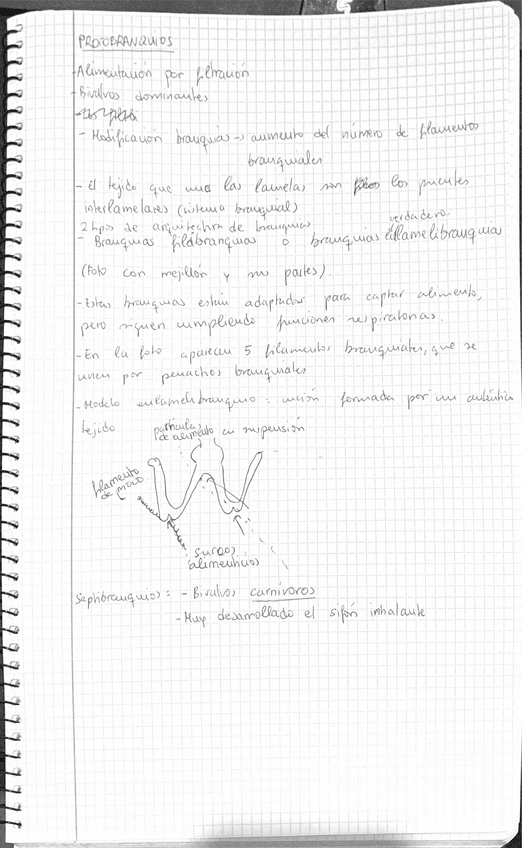 PROTOBRANQUIOS
-Alimentación por filtración
-Bivalvos dominantes
- Modificación branquias → aumento del número de filamentos
branquiales
- El tejido que une las lamelas son los puentes
interlamelares (sistema branquial)
2 tipos de arquitectura de branquias
verdadero
- Branquias filibranquias o branquias eulamelibranquia
(Foto con mejillón y sus partes).
-Estas branquias están adaptadas para captar alimento,
pero siguen cumpliendo funciones respiratorias.
-En la foto aparecen 5 filamentos branquiales, que se
unen por penachos branquiales
-Modelo eulamelibranquio: unión formada por un auténtico
tejido
partículas
de alimento en suspensión
filamento
de moco
surcos
alimenticios
Septibranquios: - Bivalvos carnívoros
-Muy desarrollado el sifón inhalante